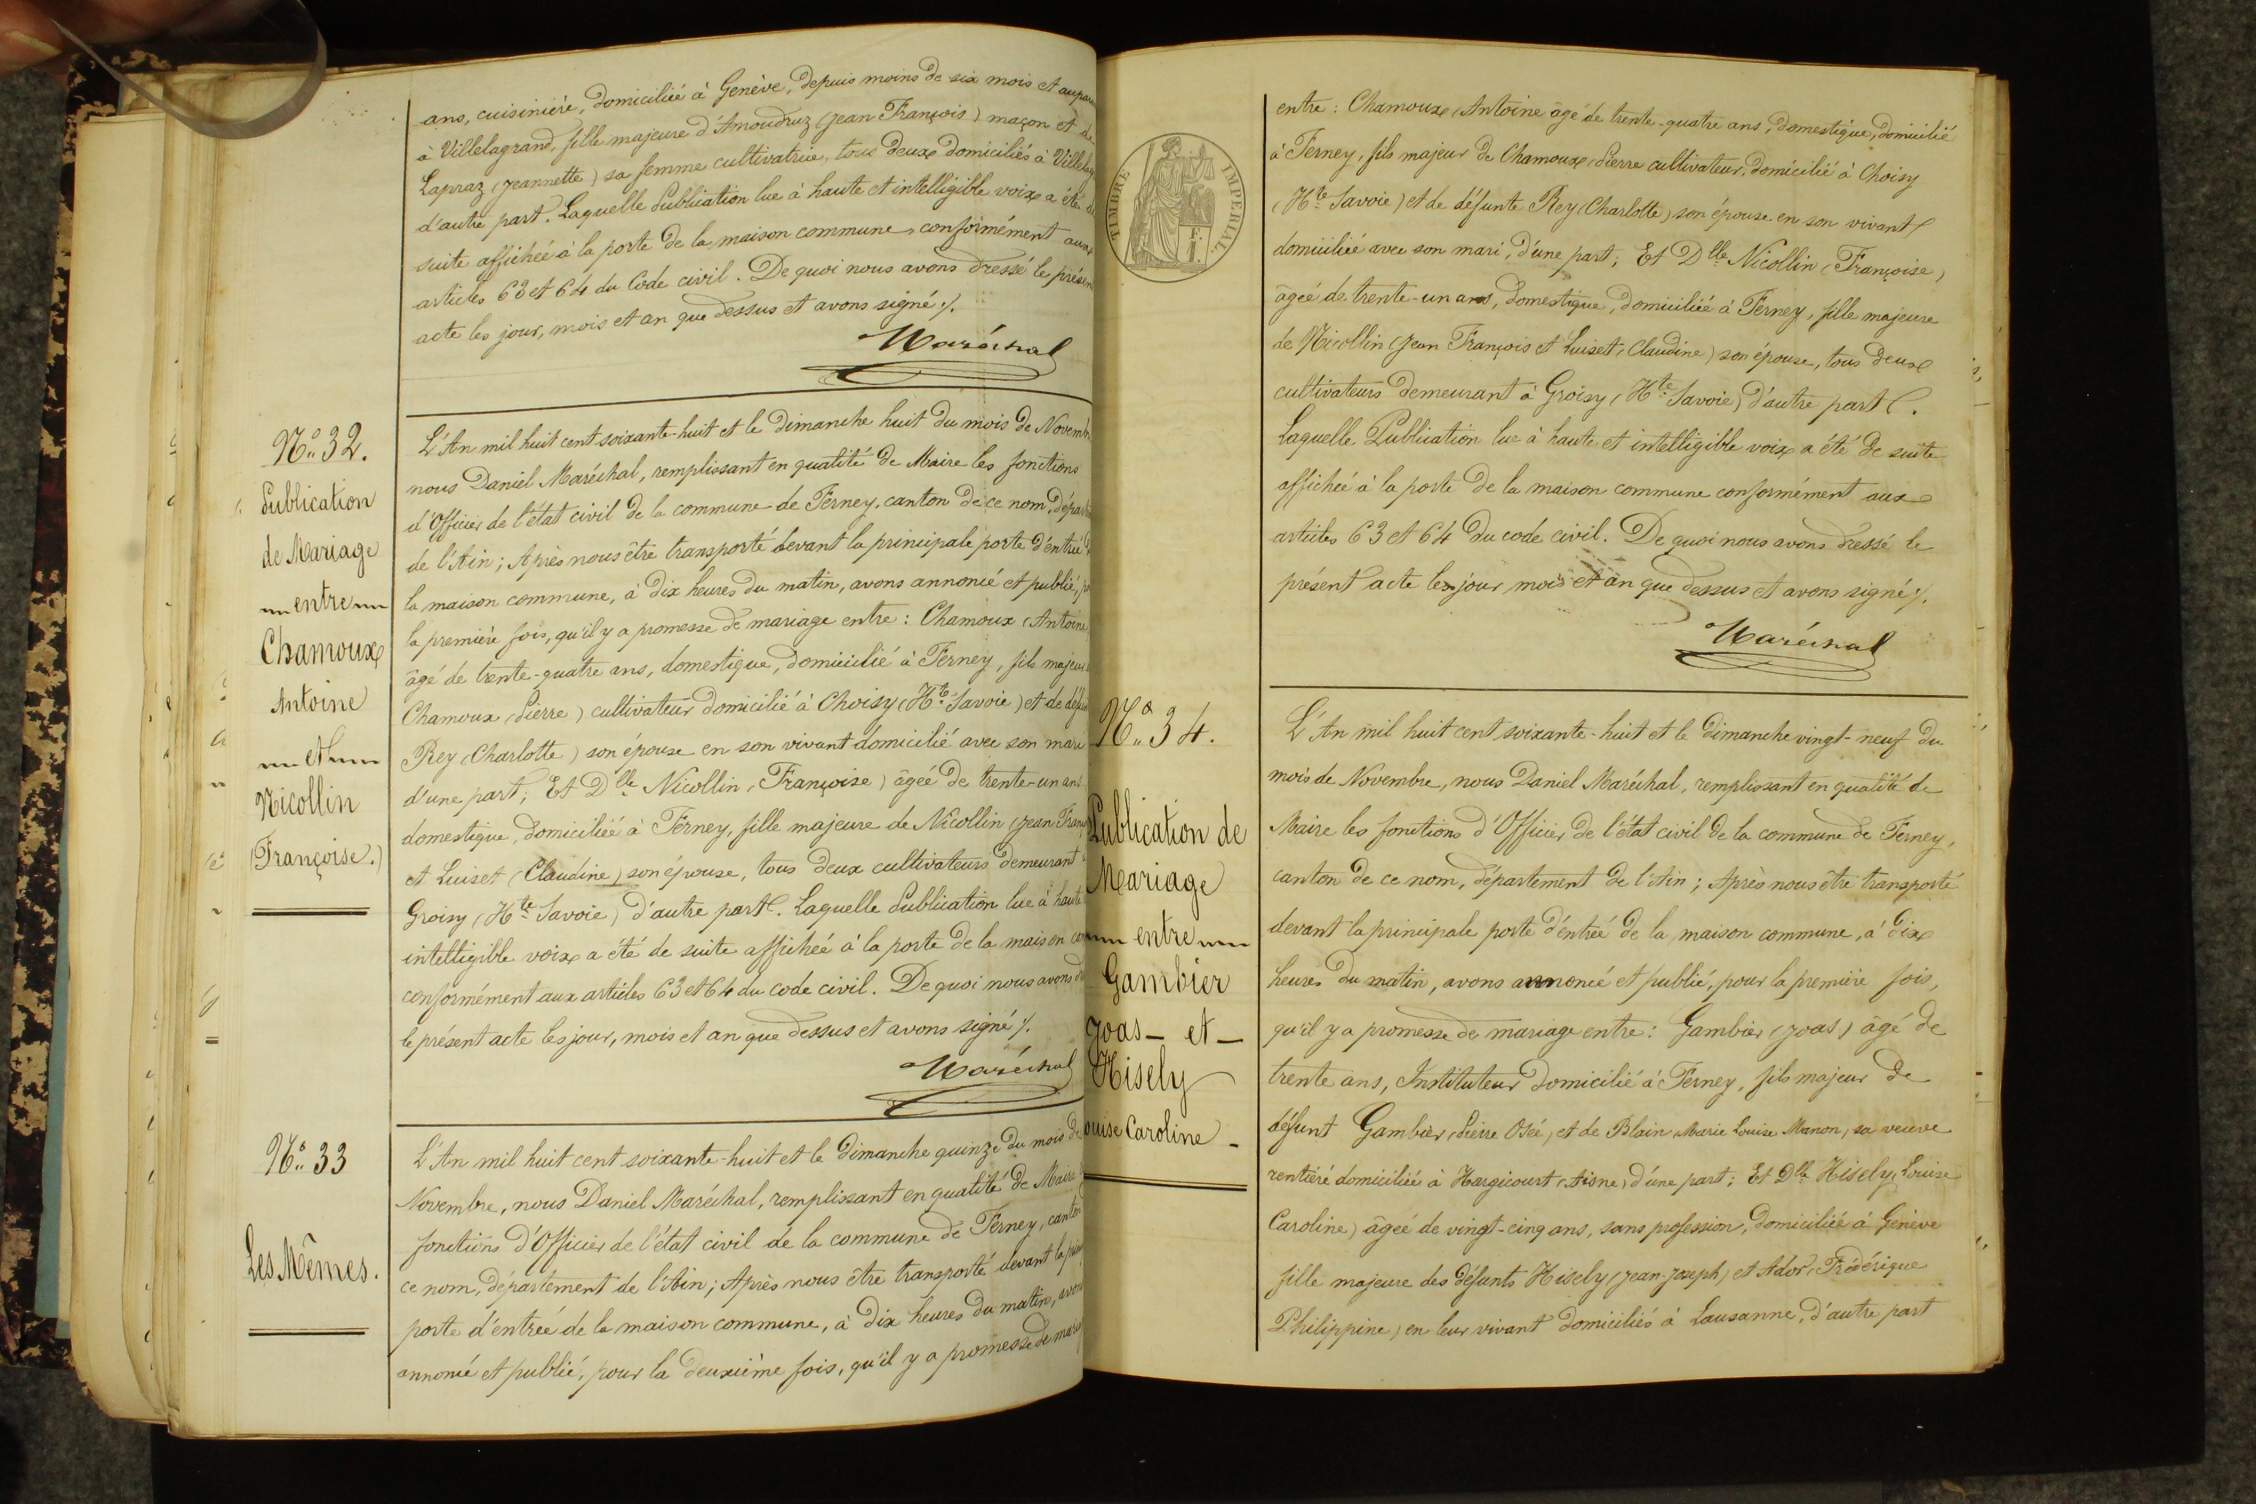 ans, cuisinière, domiciliée à Genève, depuis moins de six mois et aupara
à Villelagrand, fille majeure d'Amoudruz (Jean François) maçon et de
Lapraz (Jeannette) sa femme cultivatrice, tous deux domiciliés à Villelag
d'autre part. Laquelle Publication lue à haute et intelligible voix a été de
suite affichée à la porte de la maison commune, conformément aux
articles 63 et 64 du Code civil. De quoi nous avons dressé le présent
acte les jour, mois et an que dessus et avons signé ./.
Maréchal
No. 32.
Publication
de Mariage
entre
Chamoux
Antoine
et
Nicollin
(Françoise.)
L'An mil huit cent soixante-huit et le dimanche huit du mois de Novembre
nous Daniel Maréchal, remplissant en qualité de Maire les fonctions
d'Officier de l'état civil de la commune de Ferney, canton de ce nom, départ
de l'Ain; Après nous être transporté devant la principale porte d'entrée d
la maison commune, à dix heures du matin, avons annoncé et publié, po
la première fois, qu'il y a promesse de mariage entre: Chamoux (Antoine
âgé de trente-quatre ans, domestique, domicilié à Ferney, fils majeur
Chamoux (Pierre) cultivateur domicilié à Choisy (Hte Savoie) et de défu
Rey (Charlotte) son épouse en son vivant domicilié avec son mari
d'une part; Et Dlle Nicollin (Françoise) âgée de trente-un ans
domestique, domiciliée à Ferney, fille majeure de Nicollin (Jean Franç
et Luiset (Claudine) son épouse, tous deux cultivateurs demeurant
Groisy (Hte Savoie) d'autre part. Laquelle Publication lue à haute
intelligible voix a été de suite affichée à la porte de la maison com
conformément aux articles 63 et 64 du code civil. De quoi nous avons d
le présent acte les jour, mois et an que dessus et avons signé ./.
Maréchal
No. 33
Les Mêmes.
L'An mil huit cent soixante-huit et le dimanche quinze du mois de
Novembre, nous Daniel Maréchal, remplissant en qualité de Maire
fonctions d'Officier de l'état civil de la commune de Ferney, canton
ce nom, département de l'Ain; Après nous être transporté devant la prin
porte d'entrée de la maison commune, à dix heures du matin, avons
annoncé et publié, pour la deuxième fois, qu'il y a promesse de maria
TIMBRE IMPERIAL.
entre: Chamoux (Antoine âgé de trente-quatre ans, domestique, domicilié
à Ferney, fils majeur de Chamoux (Pierre cultivateur, domicilié à Choisy
(Hte Savoie) et de défunte Rey (Charlotte) son épouse en son vivant
domiciliée avec son mari, d'une part; Et Dlle Nicollin (Françoise)
âgée de trente-un ans, domestique, domiciliée à Ferney, fille majeure
de Nicollin (Jean François et Luiset (Claudine) son épouse, tous deux
cultivateurs demeurant à Groisy (Hte Savoie) d'autre part.
Laquelle Publication lue à haute et intelligible voix a été de suite
affichée à la porte de la maison commune conformément aux
articles 63 et 64 du code civil. De quoi nous avons dressé le
présent acte les jour mois et an que dessus et avons signé ./.
Maréchal
No. 34.
Publication de
Mariage
entre
Gambier
Joas - et -
Hisely
ouise Caroline -
L'An mil huit cent soixante-huit et le dimanche vingt-neuf du
mois de Novembre, nous Daniel Maréchal, remplissant en qualité de
Maire les fonctions d'Officier de l'état civil de la commune de Ferney,
canton de ce nom, département de l'Ain; Après nous être transporté
devant la principale porte d'entrée de la maison commune, à dix
heures du matin, avons annoncé et publié, pour la première fois,
qu'il y a promesse de mariage entre: Gambier (Joas) âgé de
trente ans, Instituteur domicilié à Ferney, fils majeur de
défunt Gambier (Pierre Osée) et de Blain (Marie Louise Manon) sa veuve
rentière domiciliée à Hargicourt (Aisne) d'une part; Et Dlle Hisely (Louise
Caroline) âgée de vingt-cinq ans, sans profession, domiciliée à Genève
fille majeure des défunts Hisely (Jean-Joseph) et Ador (Frédérique
Philippine) en leur vivant domiciliés à Lausanne, d'autre part